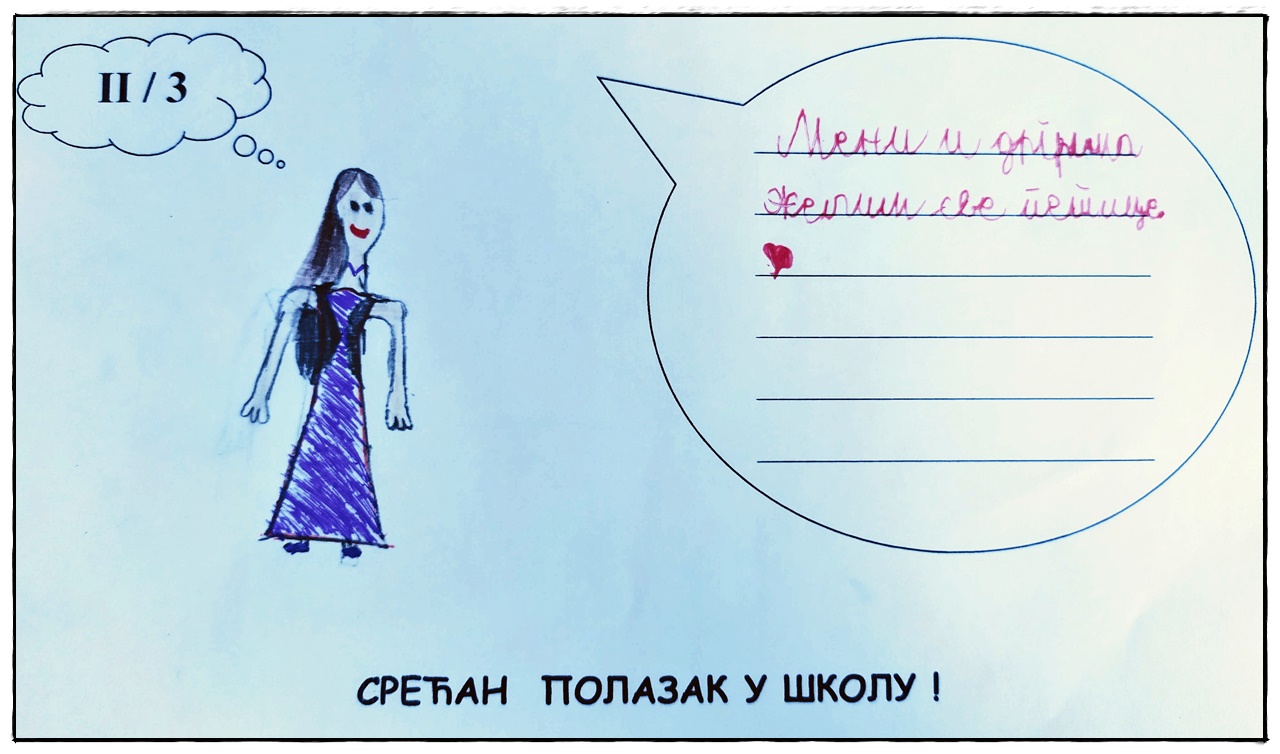 II / 3
Мени и
желим све петице.
СРЕЋАН ПОЛАЗАК У ШКОЛУ !